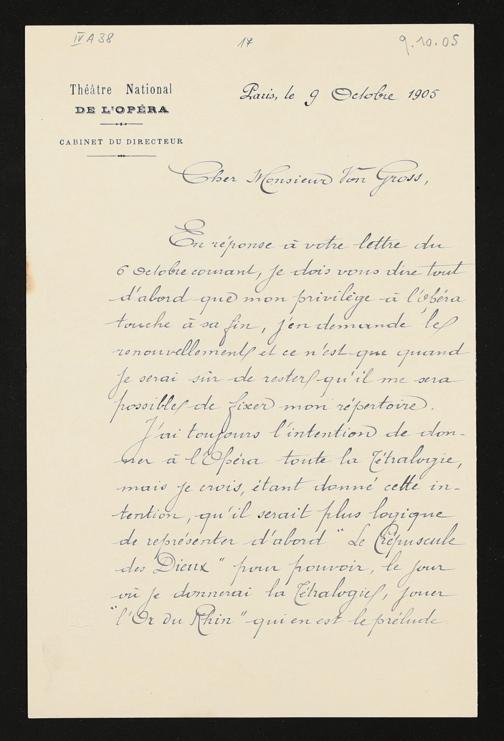 IV A 38
17
9.10.05
Théâtre National
DE L'OPÉRA
CABINET DU DIRECTEUR
Paris, le 9 Octobre 1905
Cher Monsieur Von Gross,
En réponse à votre lettre du
6 octobre courant, je dois vous dire tout
d'abord que mon privilège à l'Opéra
touche à sa fin, j'en demande le
renouvellement et ce n'est que quand
je serai sûr de rester qu'il me sera
possible de fixer mon répertoire.
J'ai toujours l'intention de don-
ner à l'Opéra toute la Tétralogie,
mais je crois, étant donné cette in-
tention, qu'il serait plus logique
de représenter d'abord "Le Crépuscule
des Dieux" pour pouvoir, le jour
où je donnerai la Tétralogie, jouer
"l'Or du Rhin" qui en est le prélude